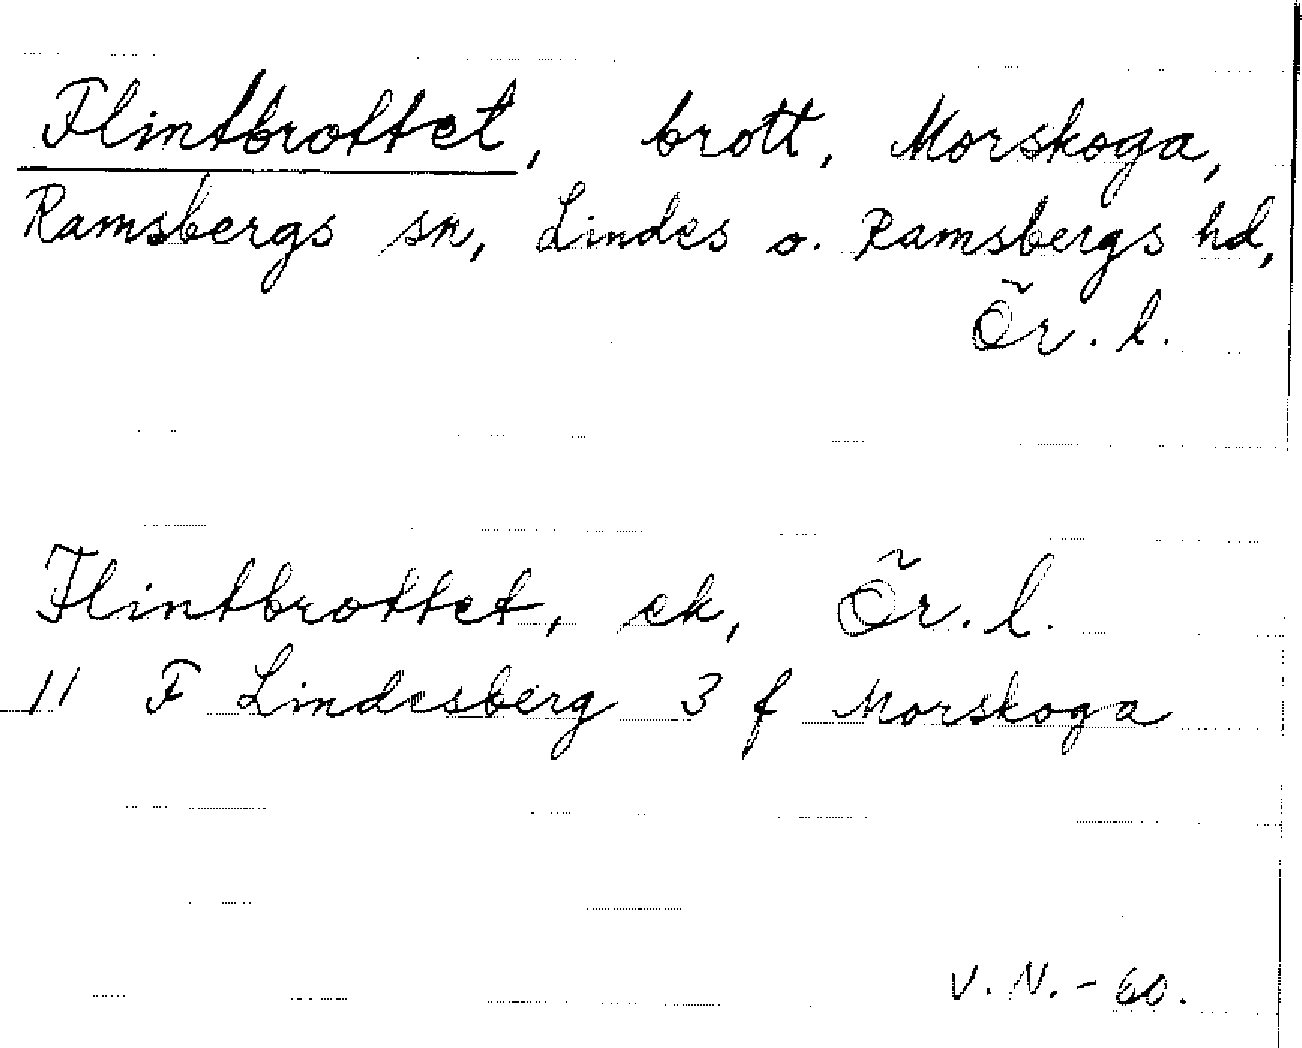 Flintbrottet, brott, Morskoga,
Ramsbergs sn, Lindes o. Ramsbergs hd,
Ör. l.
Flintbrottet, ek, Ör. l.
11 F Lindesberg 3 f Morskoga
V. N. - 60.